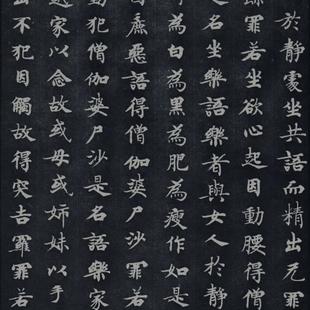 於靜處坐共語而精出无罪
除罪若坐欲心起因動腰得僧
名坐樂語樂者與女人於靜
子為白為黑為肥為瘦作如是
麁惡語得僧伽婆尸沙罪若
動犯僧伽婆尸沙是名語樂家
家以念故或母或姉妹以手
不犯因觸故得突吉羅罪若